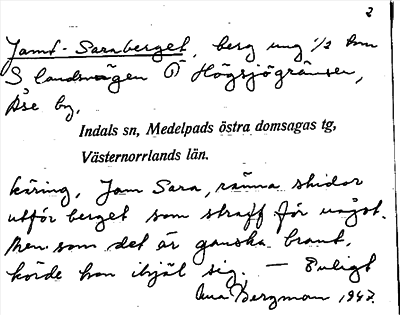 2
Jamt-Saraberget, berg ung 1/2 km
S landsvägen O Högsjögränsen,
Åse by,
Indals sn, Medelpads östra domsagas tg,
Västernorrlands län.
käring, Jam Sara, ränna skidor
utför berget som straff för något.
Men som det är ganska brant,
körde hon ihjäl sig. — Enligt
Anna Bergman 1947.